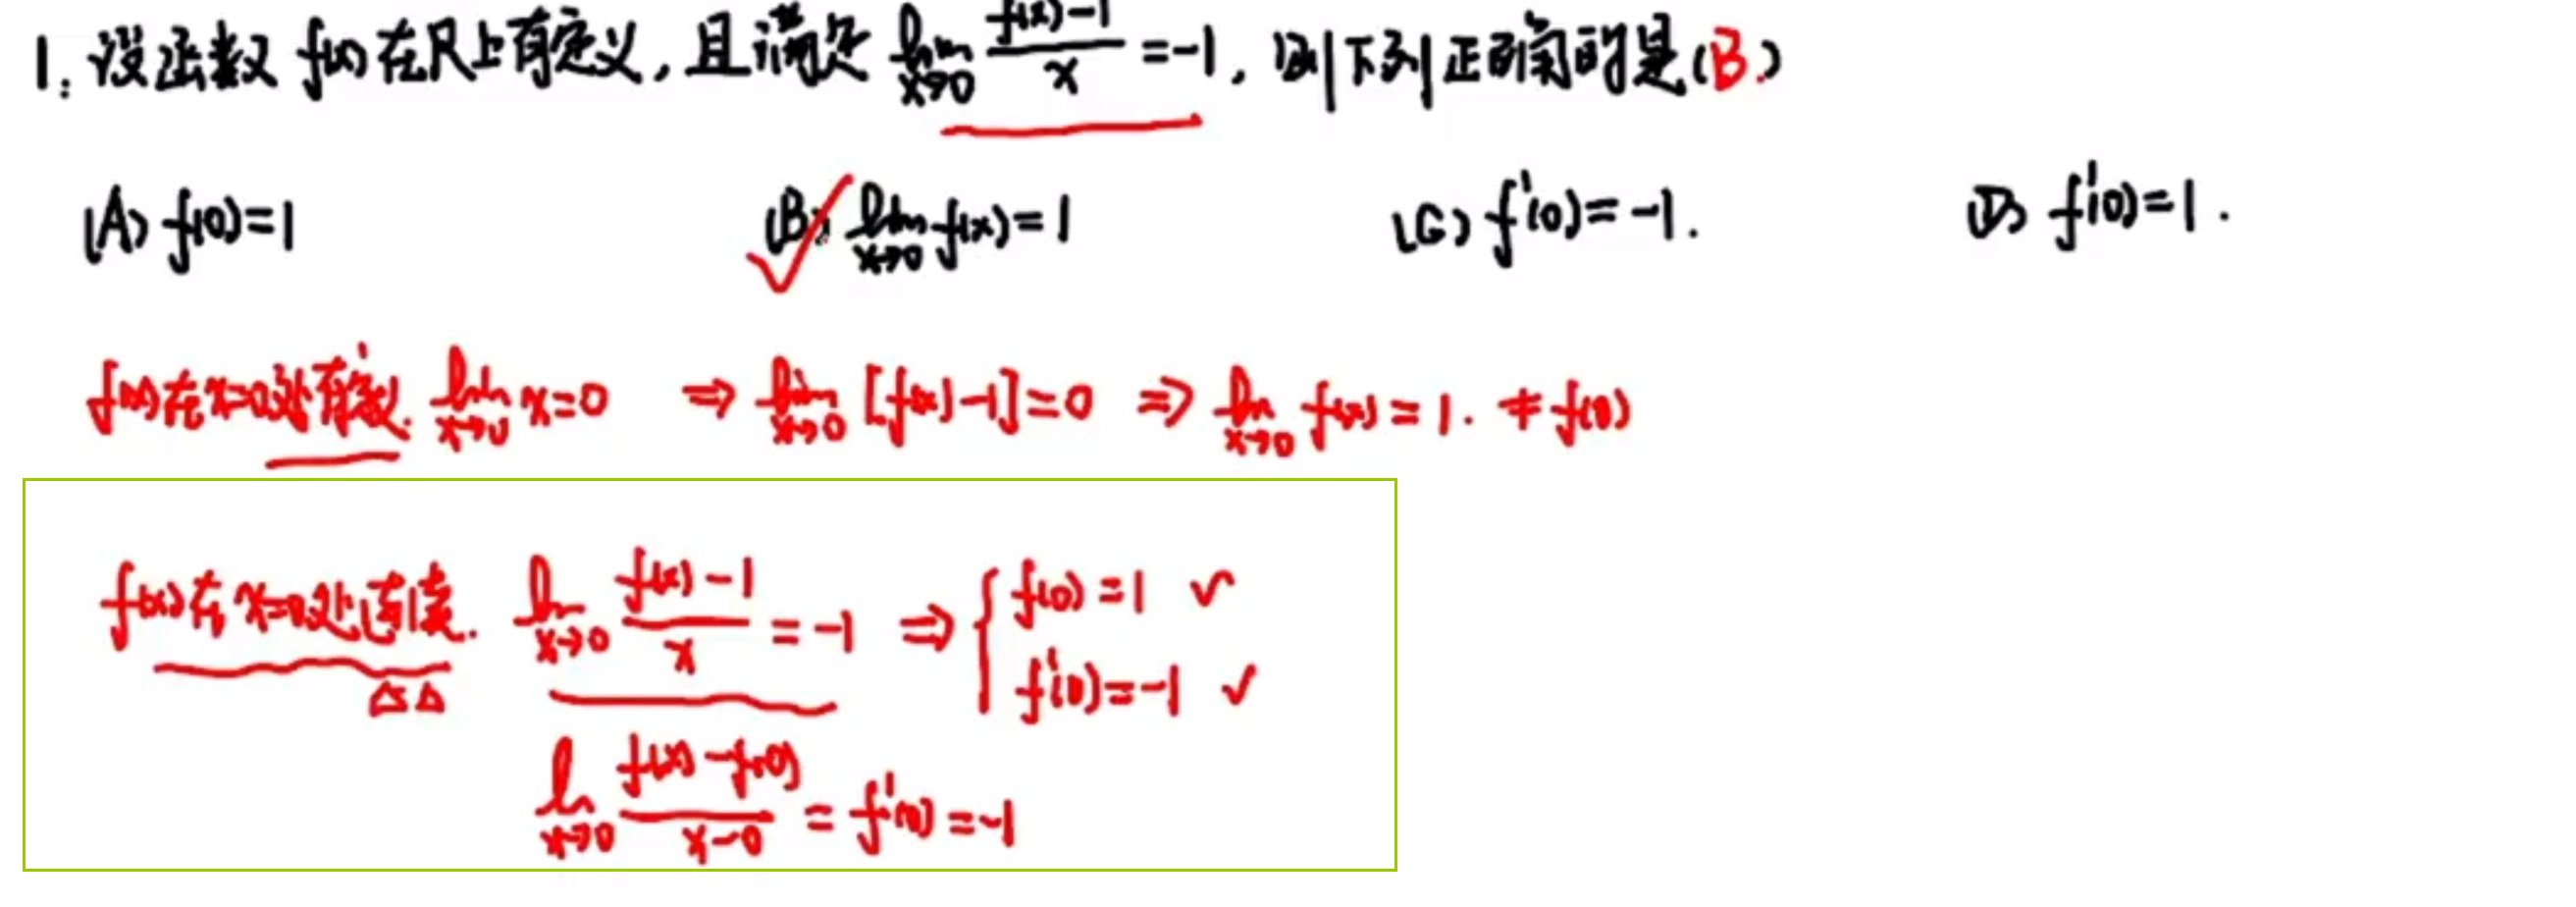 1. 设函数 f(x) 在R上有定义, 且满足 lim x→0 (f(x)-1)/x = -1, 则下列正确的是(B.)
(A) f(0)=1 (B) lim x→0 f(x)=1 (C) f'(0)=-1. (D) f'(0)=1.
f(x)在x=0处有定义. lim x→0 x=0 ⇒ lim x→0 [f(x)-1]=0 ⇒ lim x→0 f(x)=1. ≠f(0)
f(x)在x=0处连续. lim x→0 (f(x)-1)/x = -1 ⇒ { f(0)=1 ✓
f'(0)=-1 ✓
△△
lim x→0 (f(x)-f(0))/(x-0) = f'(0) = -1